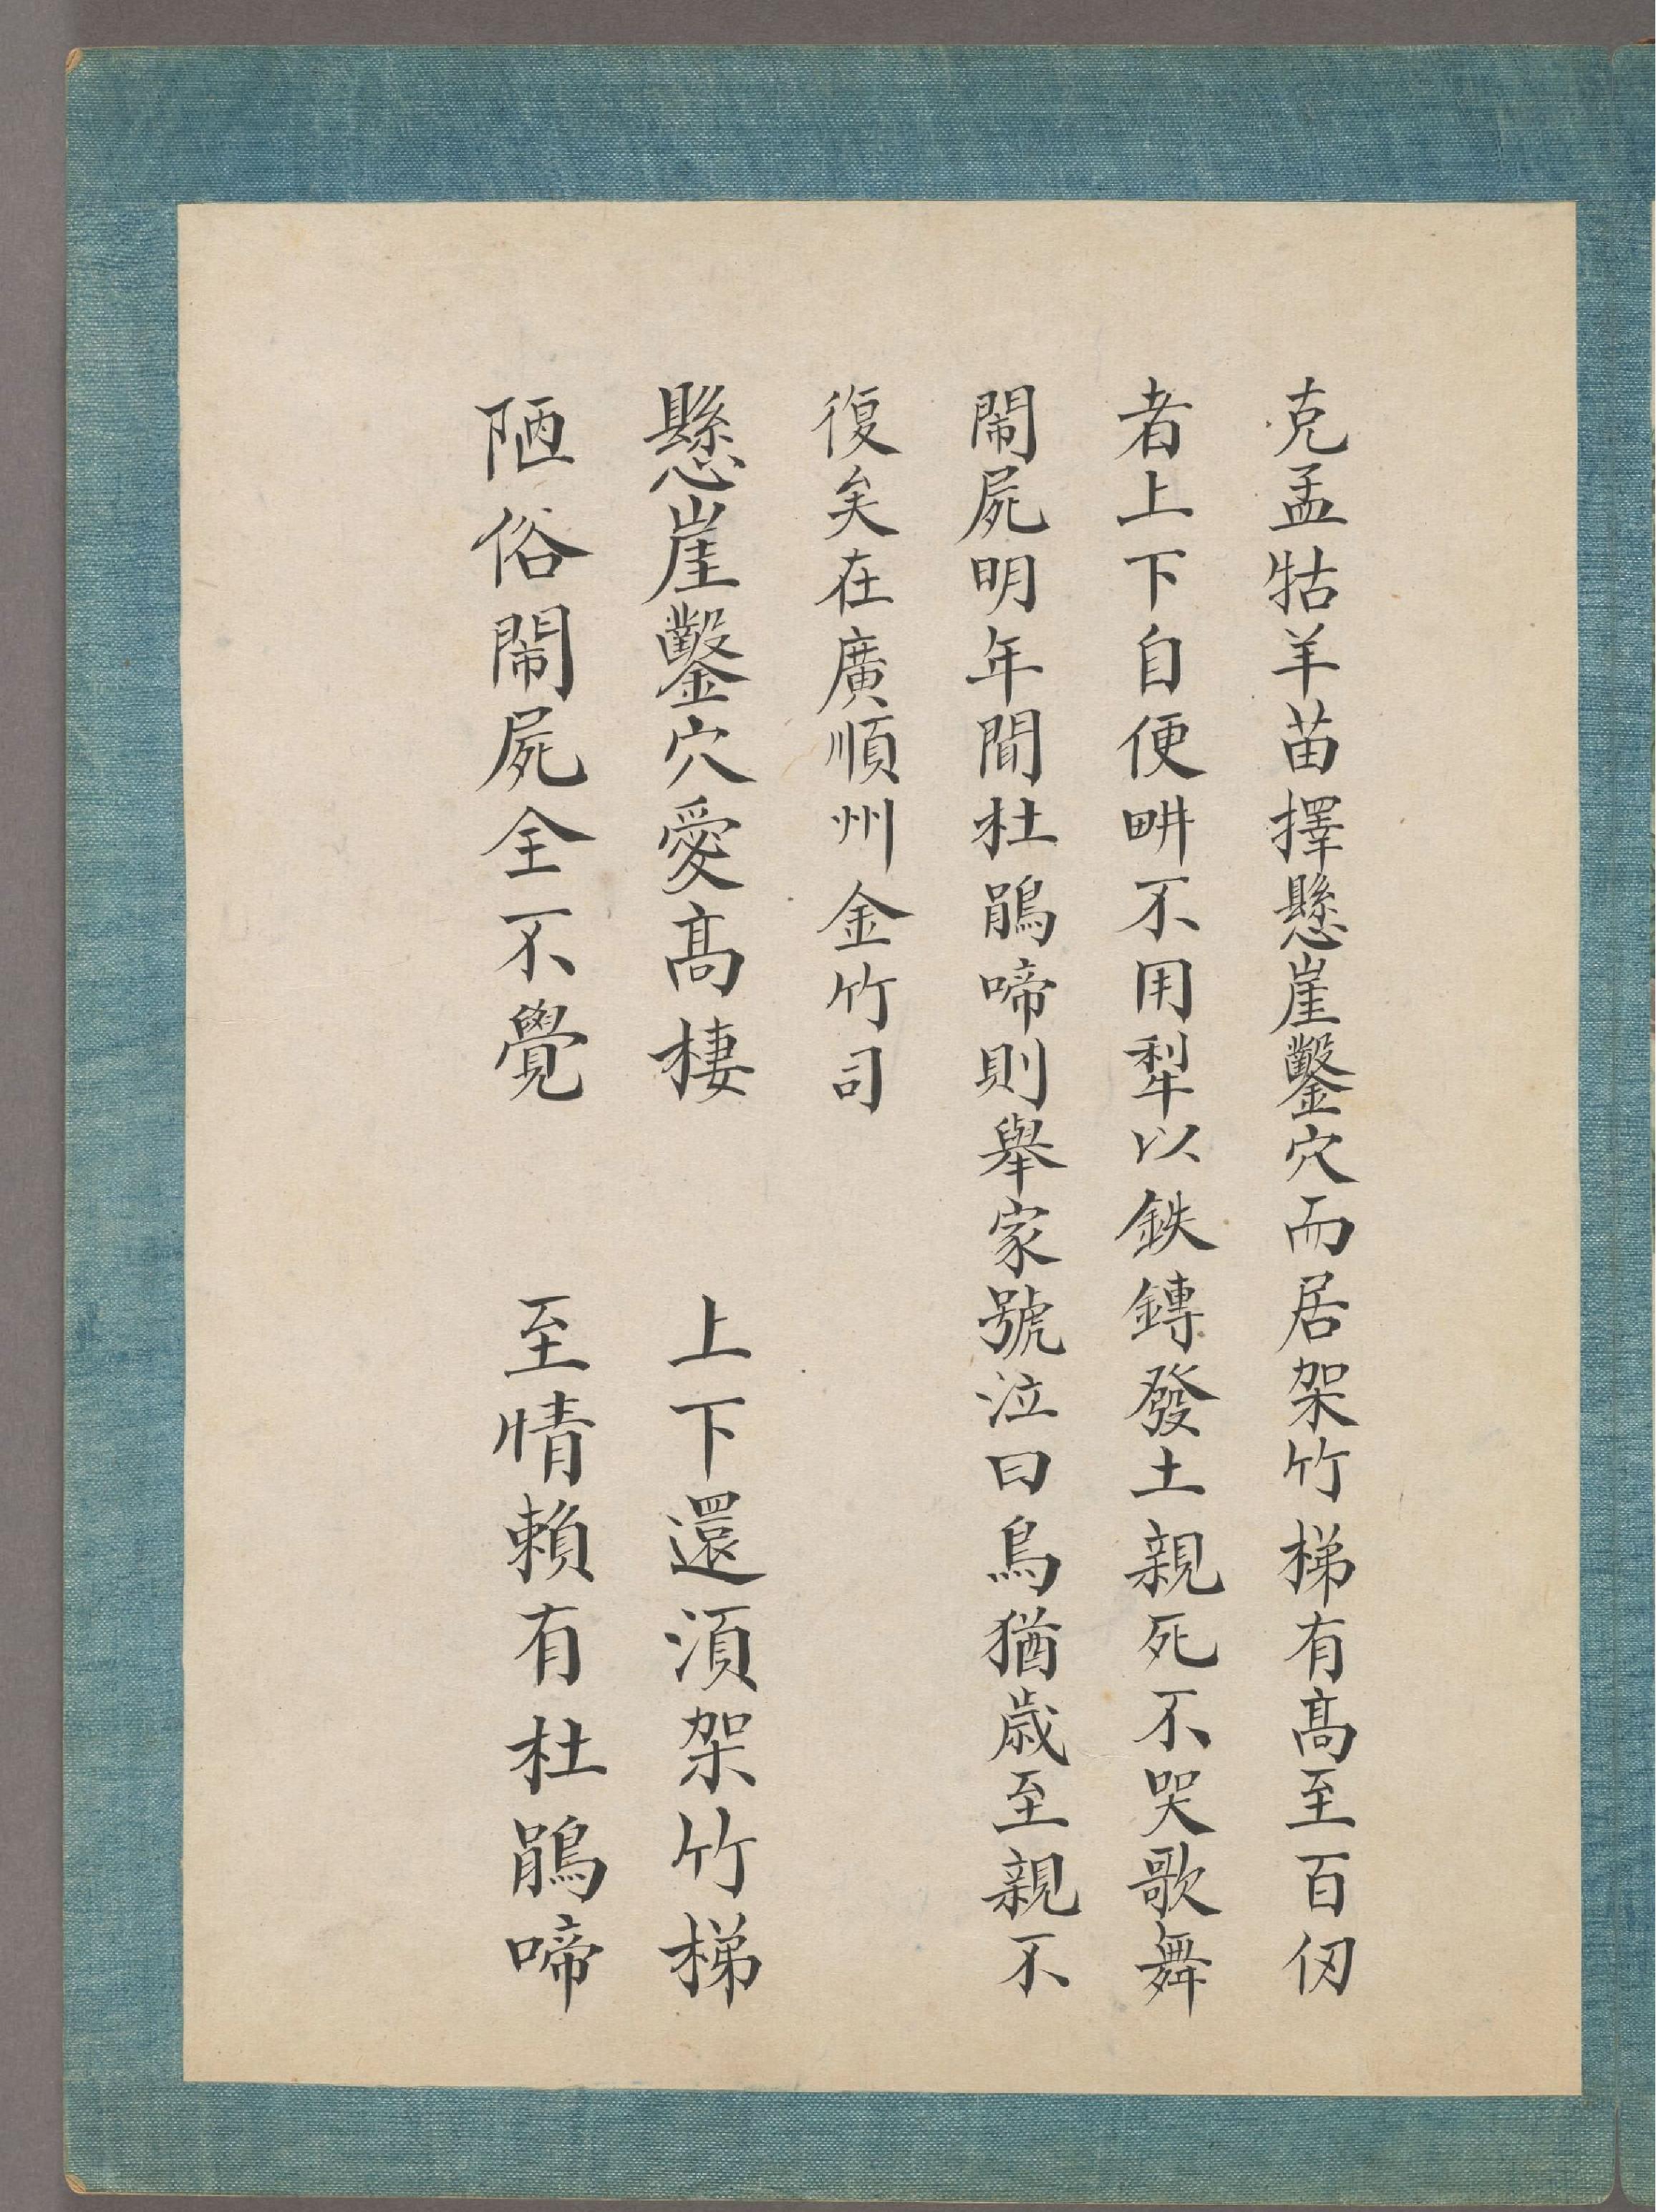 克孟牯羊苗擇懸崖鑿穴而居架竹梯有髙至百仞
者上下自便畊不用犁以鉄鏄發土親死不哭歌舞
鬧屍明年間杜鵑啼則舉家號泣曰鳥猶歳至親不
復矣在廣順州金竹司
懸崖鑿穴愛髙棲 上下還湏架竹梯
陋俗鬧屍全不覺 至情賴有杜鵑啼